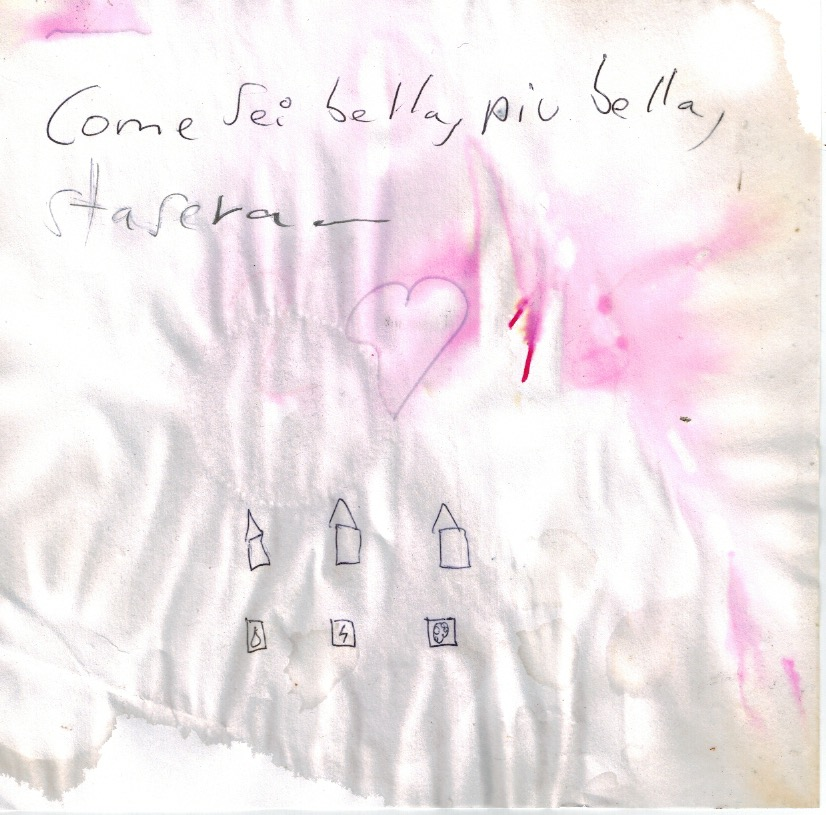 Come sei bella, più bella,
stasera —